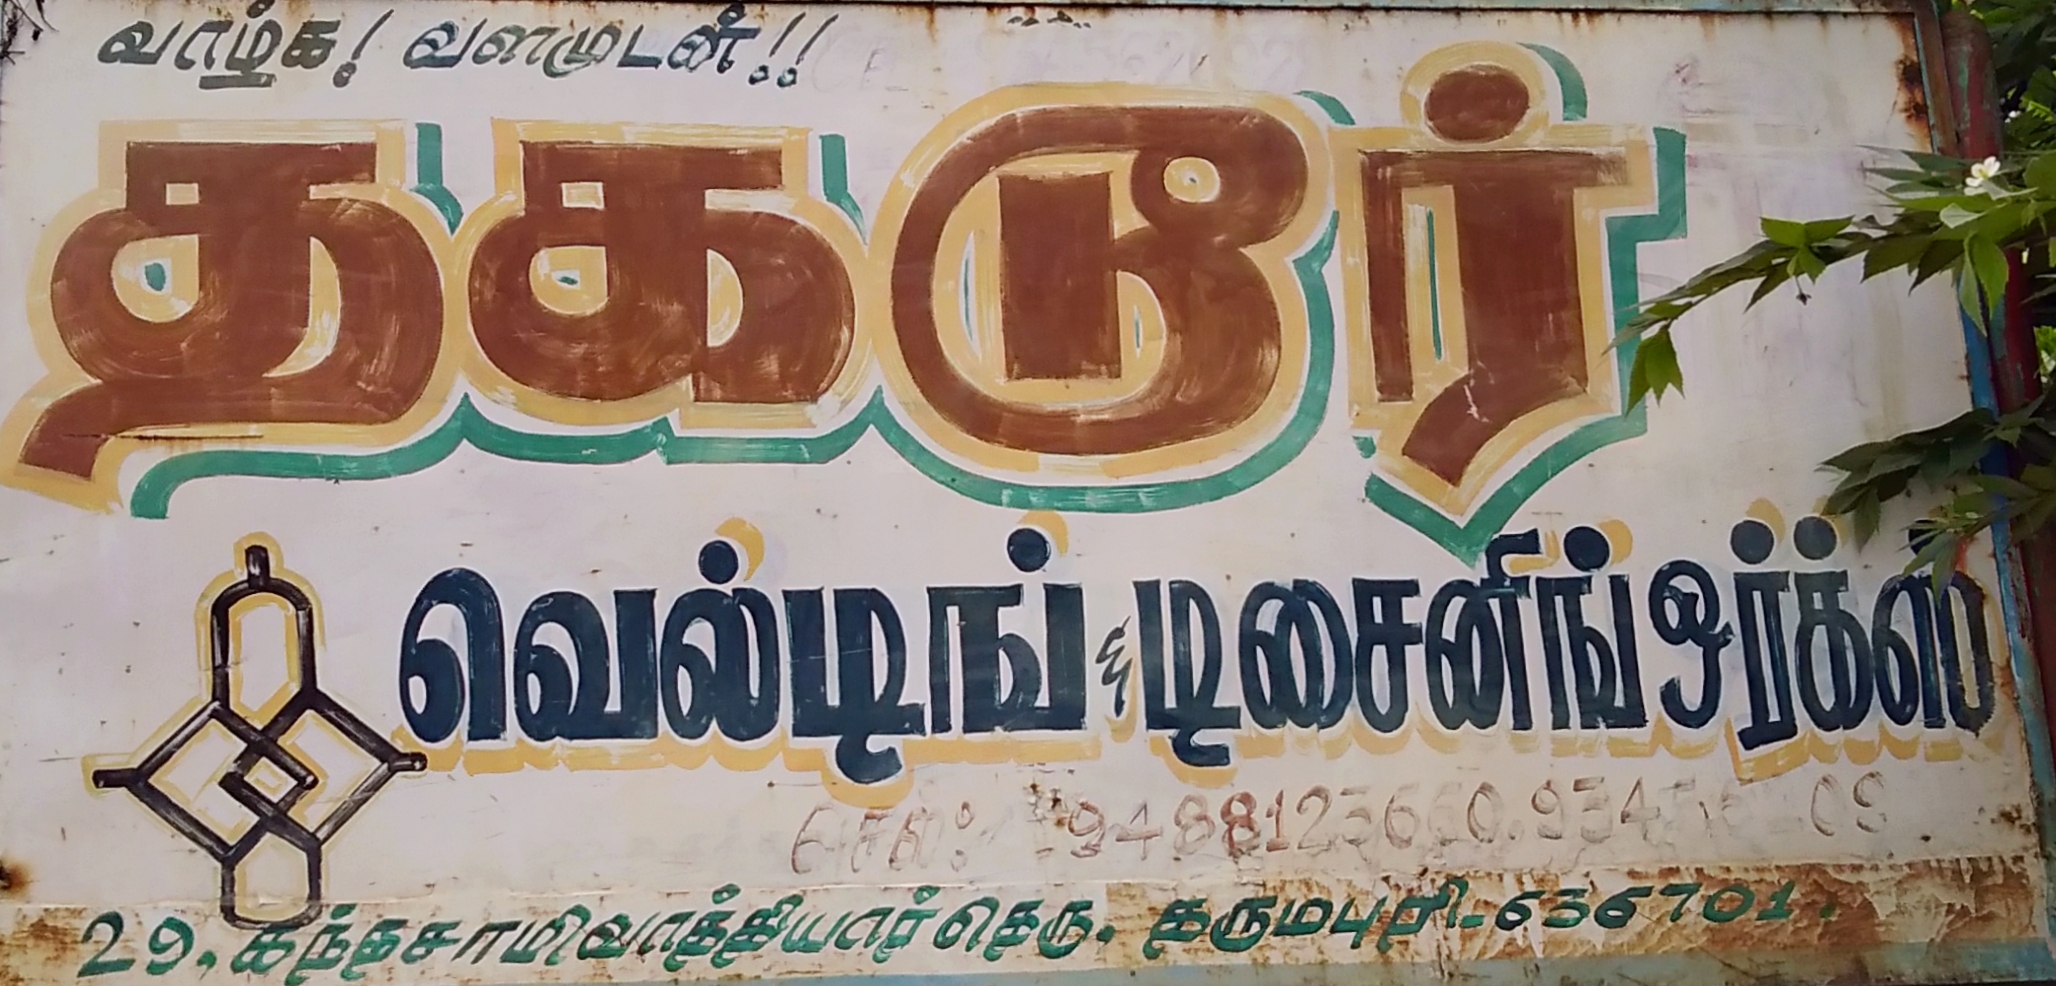 வாழ்க! வளமுடன்!!
தகடூர்
வெல்டிங் & டிசைனிங் ஒர்க்ஸ்
செல்: 9488123660.
29, கந்தசாமிவாத்தியார் தெரு. தருமபுரி-636701.